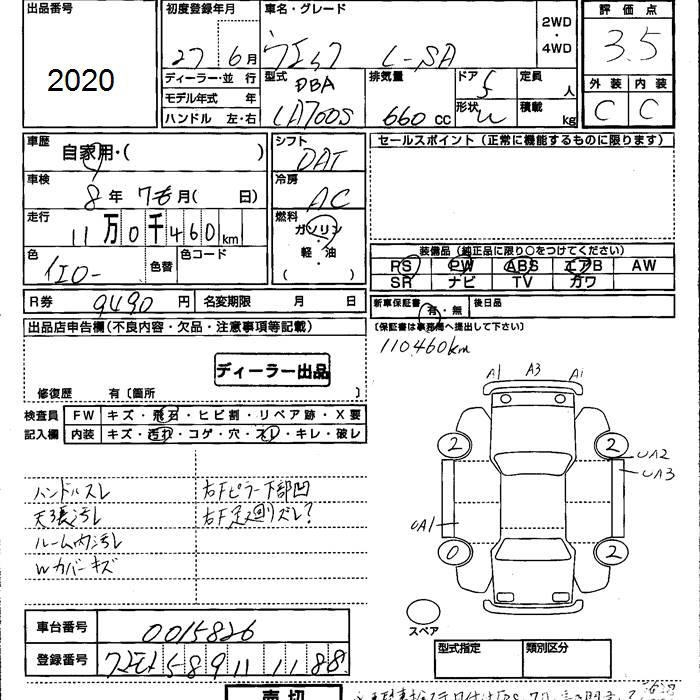 出品番号
2020
初度登録年月
27 6月
車名・グレード
ウエイク L-SA
2WD
・
4WD
評価点
3.5
ディーラー・並 行
モデル年式 年
ハンドル 左・右
型式
DBA
LA700S
排気量
660 cc
ドア
5
形状
定員
人
積載
kg
外装 内装
C C
車歴
自家用・( )
車検
8年 7月( 日)
走行
11万0千460km
色
イエロー
色替
色コード
シフト
DAT
冷房
AC
燃料
ガソリン
・
軽・油
( )
セールスポイント (正常に機能するものに限ります)
装備品 (純正品に限り○をつけてください)
RS PW ABS エアB AW
SR ナビ TV カワ
R券 9490 円 名変期限 月 日
新車保証書 有・無 後日品
(保証書は事務局へ提出して下さい)
110460km
出品店申告欄 (不良内容・欠品・注意事項等記載)
ディーラー出品
修復歴 有〔箇所 〕
検査員 FW キズ・飛石・ヒビ割・リペア跡・X要
記入欄 内装 キズ・汚れ・コゲ・穴・スレ・キレ・破レ
ハンドルスレ
天張汚レ
ルーム内汚レ
Wカバーキズ
右Fピラー下部凹
右F足廻りズレ?
A1 A3 A1
2 2
UA2
UA3
UA1
0 2
スペア
車台番号 0015826
登録番号 589 11 11 88
型式指定 類別区分
売切